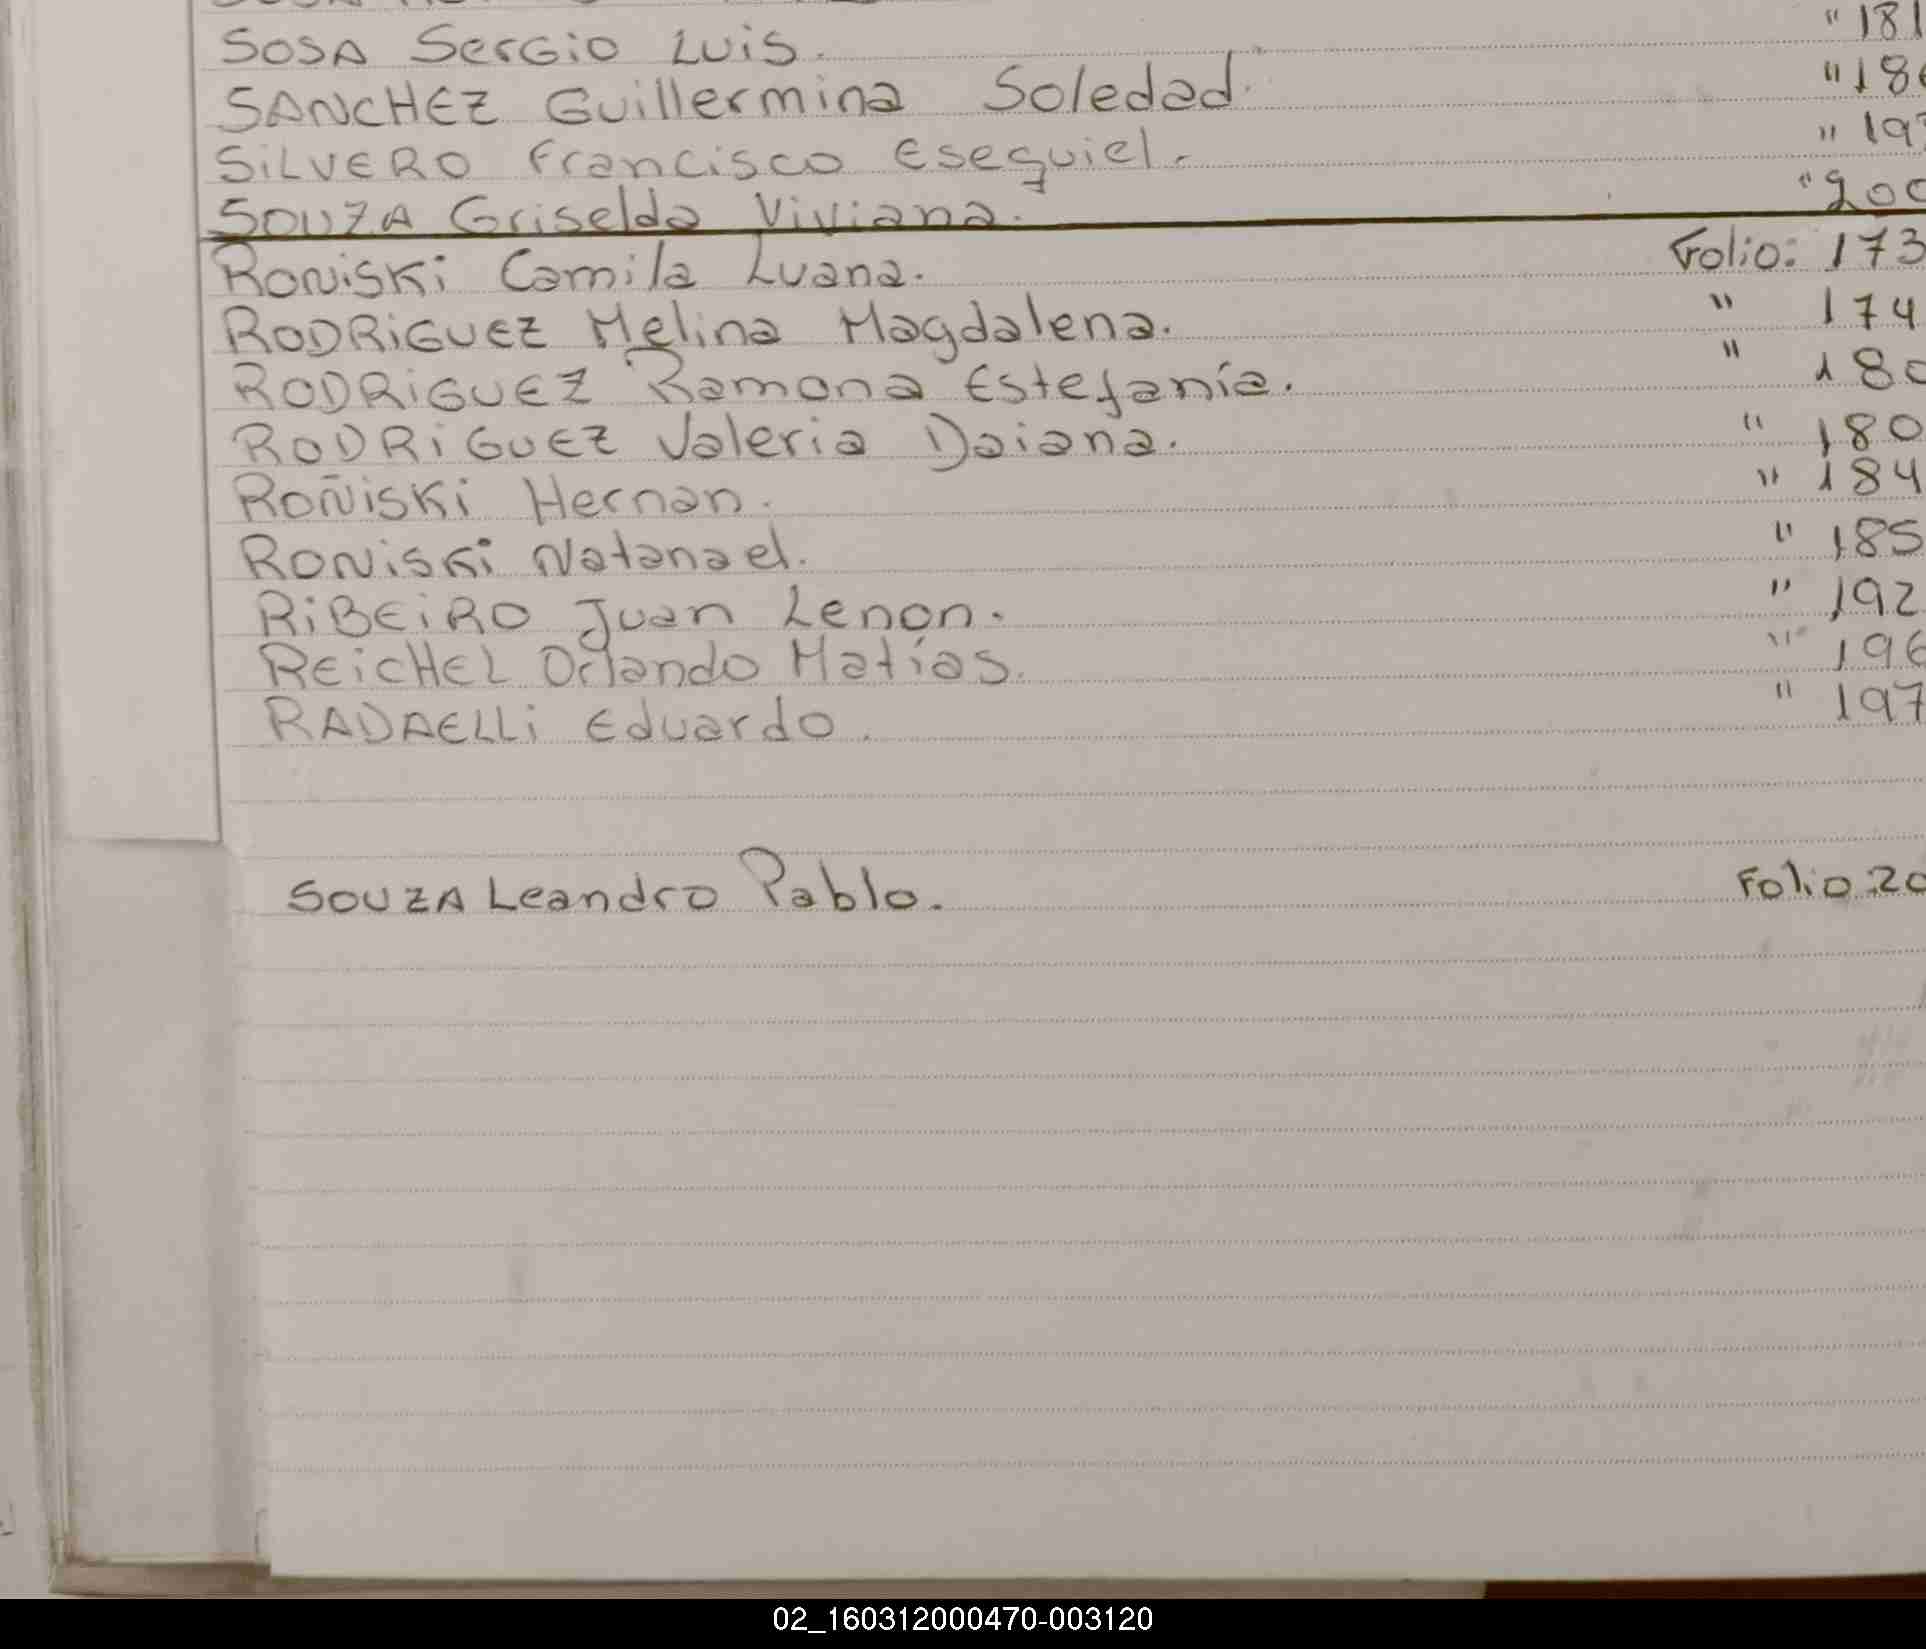 SOSA Sergio Luis. " 181
SANCHEZ Guillermina Soledad. "
SILVERO Francisco Esequiel. "
SOUZA Griselda Viviana. "
RONiSKi Camila Luana. Folio: 173
RODRiGUEZ Melina Magdalena. " 174
RODRiGUEZ Ramona Estefanía. "
RODRiGUEZ Valeria Daiana. " 180
ROÑiSKi Hernan. " 184
RONiSKi Natanael. " 185
RiBEiRO Juan Lenon. " 192
REiCHEL Orlando Matías. " 196
RADAELLi Eduardo. " 197
SOUZA Leandro Pablo. Folio
02_160312000470-003120